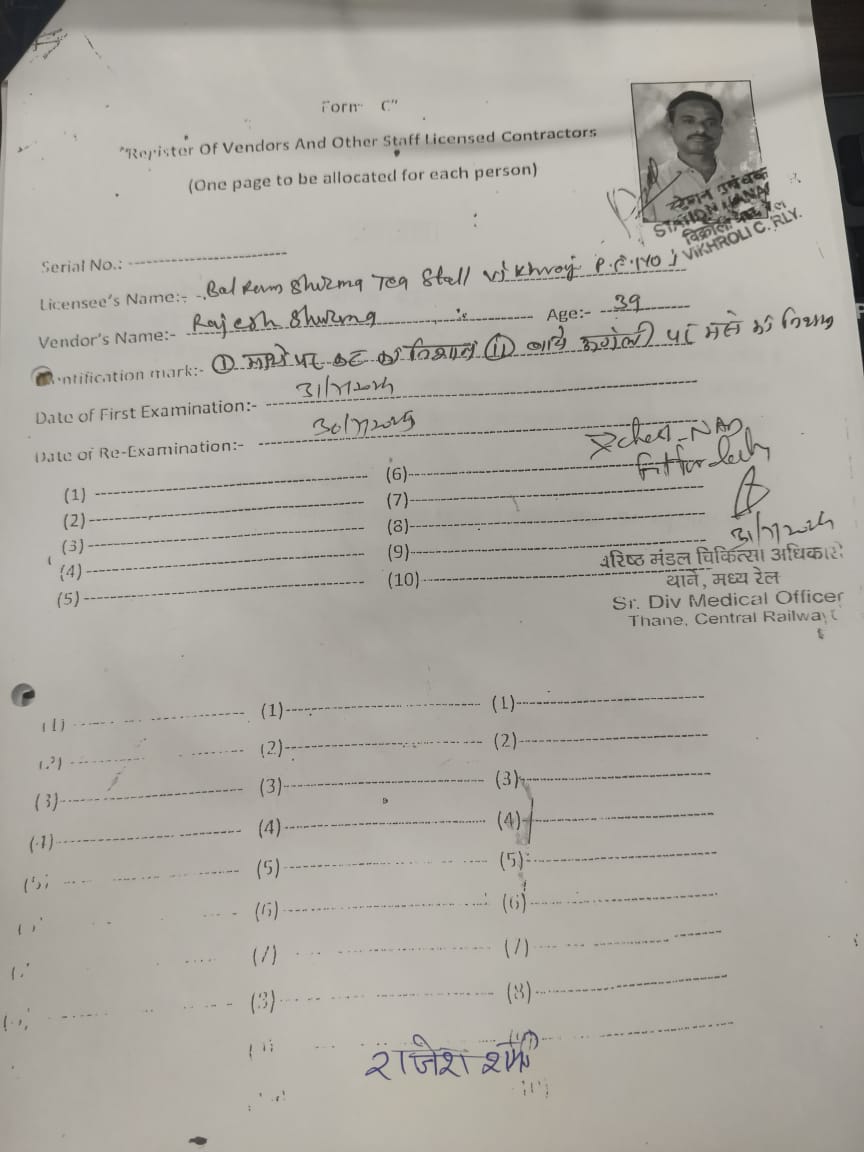 Form C"
"Register Of Vendors And Other Staff Licensed Contractors
(One page to be allocated for each person)
स्टेशन प्रबंधक
STATION MANA
विक्रोली मध्य रेल
VIKHROLI C. RLY.
Serial No.:
Licensee's Name:- Bal Ram Shurma Tea Stall
Vendor's Name:- Rajesh Shurma Age:- 39
ntification mark:- ① माथे पर कट का निशान ②
Date of First Examination:- 31/7/2024
Date of Re-Examination:- 30/7/2025
X chest - NAD
Fit for
(1) (6)
(2) (7)
(3) (8)
(4) (9)
(5) (10)
31/7/2024
वरिष्ठ मंडल चिकित्सा अधिकारी
थाने, मध्य रेल
Sr. Div Medical Officer
Thane, Central Railway
(1) (1) (1)
(2) (2) (2)
(3) (3) (3)
(4) (4) (4)
(5) (5) (5)
(6) (6)
(7) (7)
(8) (8)
राजेश शर्मा